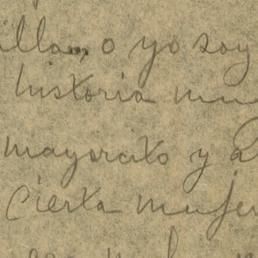 illa, o yo soy
historia mu
mayorcito y a
cierta mujer